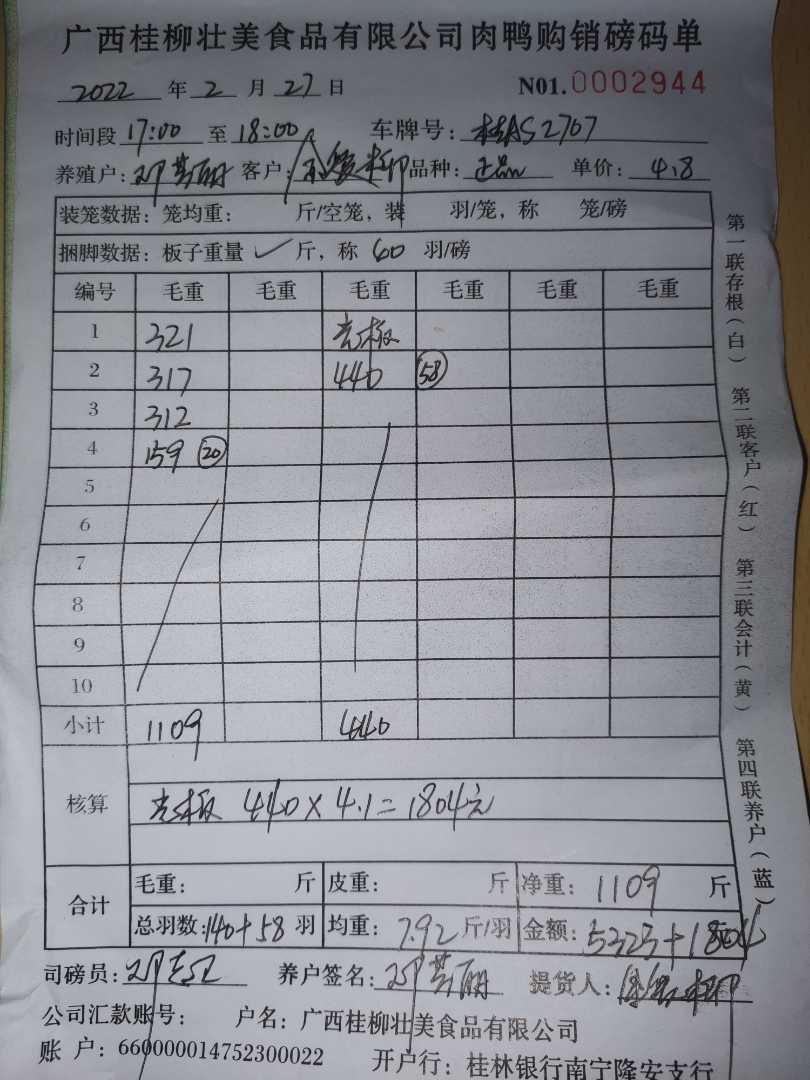 广西桂柳壮美食品有限公司肉鸭购销磅码单
2022 年 2 月 27 日 N01.0002944
时间段 17:00 至 18:00 车牌号: 桂AS2707
养殖户: 邓 丽 客户: 品种: 正品 单价: 4.8
装笼数据: 笼均重: 斤/空笼, 装 羽/笼, 称 笼/磅
捆脚数据: 板子重量 ✓ 斤, 称 60 羽/磅
编号 毛重 毛重 毛重 毛重 毛重 毛重
1 321 板
2 317 440 58
3 312
4 159 20
5
6
7
8
9
10
小计 1109 440
核算 板 440×4.1=1804元
合计 毛重: 斤 皮重: 斤 净重: 1109 斤
总羽数: 140+58 羽 均重: 7.92 斤/羽 金额: 5323+1804
司磅员: 邓 养户签名: 邓 丽 提货人:
公司汇款账号: 户名: 广西桂柳壮美食品有限公司
账 户: 660000014752300022 开户行: 桂林银行南宁隆安支行
第一联存根(白) 第二联客户(红) 第三联会计(黄) 第四联养户(蓝)